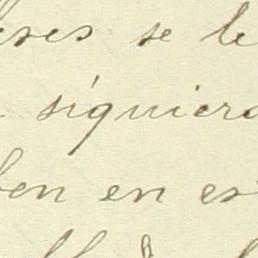 ses se le
siquiera
ben en es